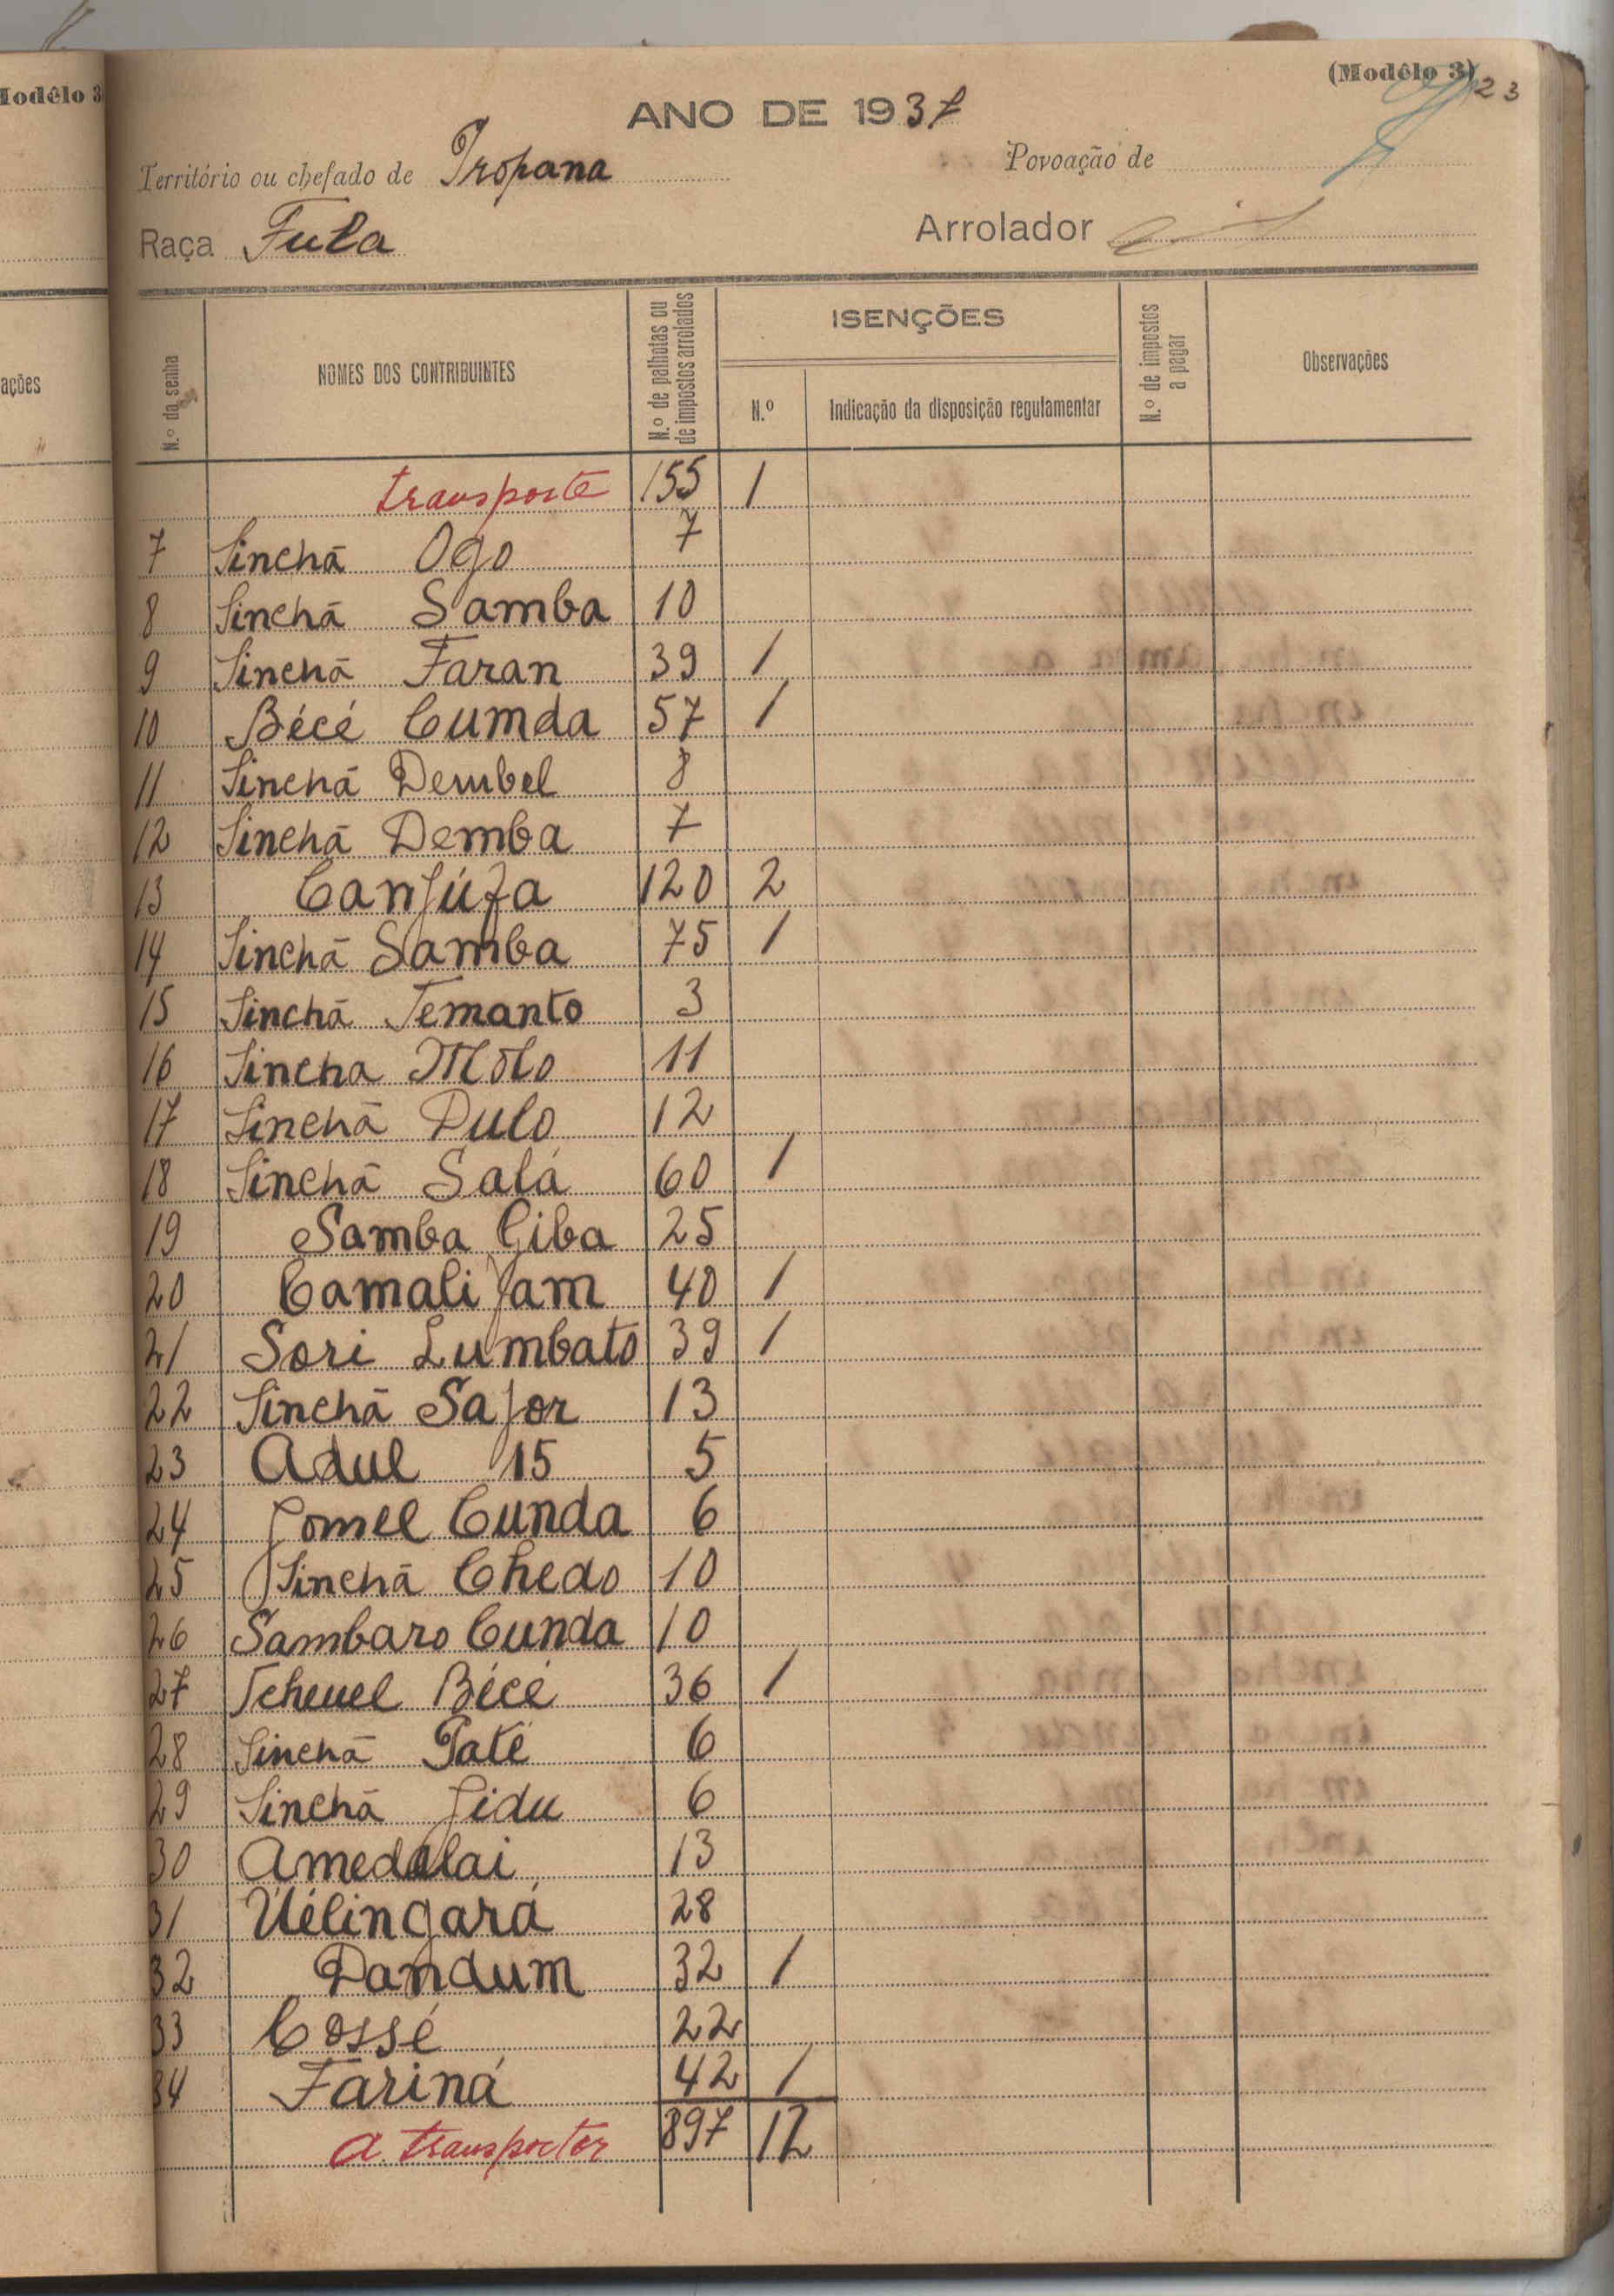 Modêlo 3
(Modêlo 3)
23
ANO DE 1937
Território ou chefado de Propana
Povoação de
Raça Fula
Arrolador
N.º da senha
NOMES DOS CONTRIBUINTES
N.º de palhotas ou de impostos arrolados
ISENÇÕES
N.º
Indicação da disposição regulamentar
N.º de impostos a pagar
Observações
ações
transporte 155 1
7 Sinchã Ogo 7
8 Sinchã Samba 10
9 Sinchã Faran 39 1
10 Bécé Cumda 57 1
11 Sinchã Dembel 8
12 Sinchã Demba 7
13 Canjúfa 120 2
14 Sinchã Samba 75 1
15 Sinchã Temanto 3
16 Sincha Molo 11
17 Sinchã Dulo 12
18 Sinchã Salá 60 1
19 Samba Giba 25
20 Camali Jam 40 1
21 Sori Lumbato 39 1
22 Sinchã Sajor 13
23 Adul 15 5
24 Jomel Cunda 6
25 Sinchã Chedo 10
26 Sambaro Cunda 10
27 Tcheuel Bécé 36 1
28 Sinchã Paté 6
29 Sinchã Jidu 6
30 Amedalai 13
31 Uélingará 28
32 Dandum 32 1
33 Cossé 22
34 Fariná 42 1
a transportar 897 12